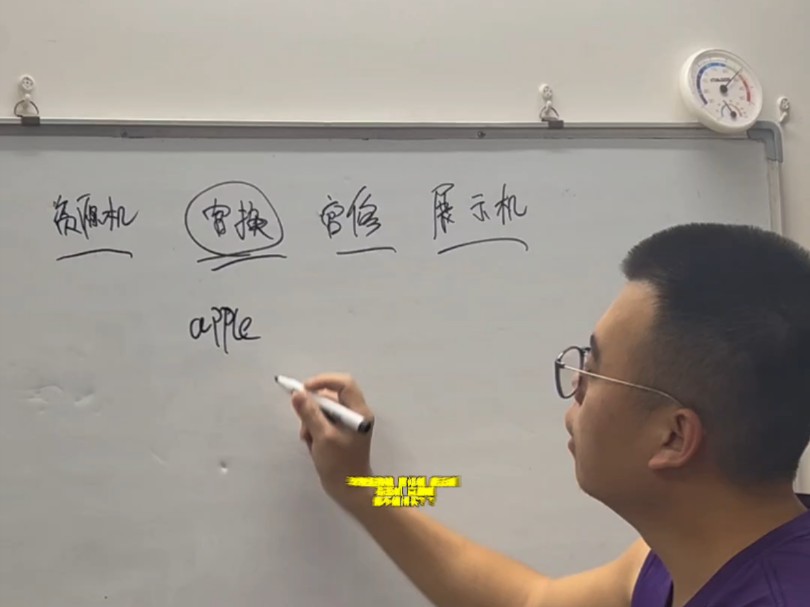 资源机 官换 官修 展示机
apple